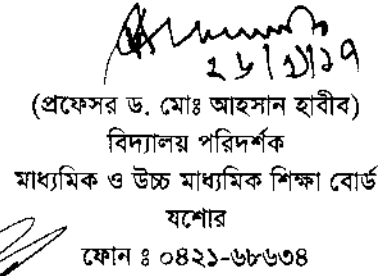 (প্রফেসর ড. মোঃ আহসান হাবীব)
বিদ্যালয় পরিদর্শক
মাধ্যমিক ও উচ্চ মাধ্যমিক শিক্ষা বোর্ড
যশোর
ফোন ঃ ০৪২১-৬৮৬৩৪